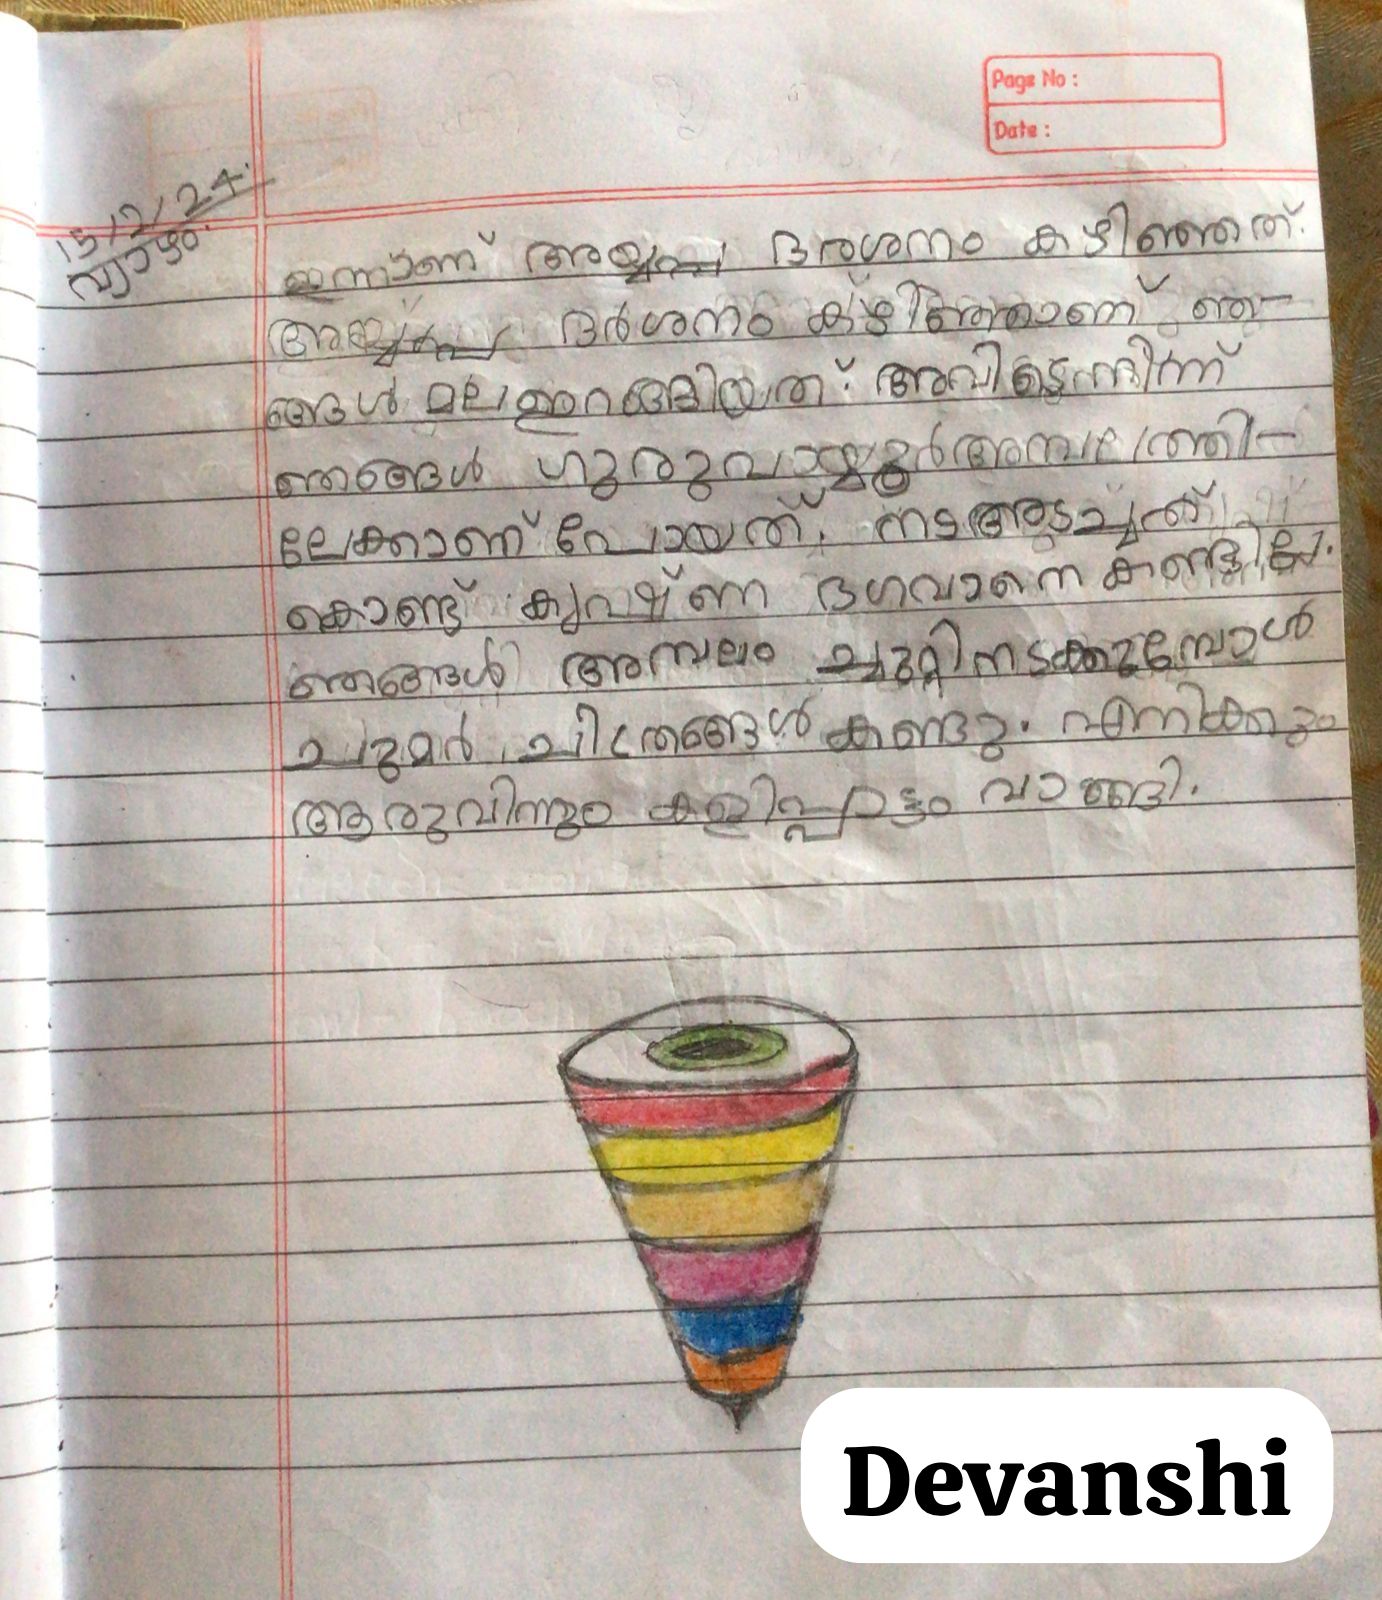 Page No :
Date :
15/2/24.
വ്യാഴം.
ഇന്നാണ് അയ്യപ്പ ദരശനം കഴിഞ്ഞത്.
അയ്യപ്പ ദർശനം കഴിഞ്ഞാണ് ഞ-
ങ്ങൾ മല ഇറങ്ങിയത്. അവിടെന്ന്
ഞങ്ങൾ ഗുരുവായൂർ അമ്പലത്തി-
ലേക്കാണ് പോയത്. നട അടച്ചത്
കൊണ്ട് ഭഗവാനെ കണ്ടില്ല.
ഞങ്ങൾ അമ്പലം ചുറ്റി നടക്കുമ്പോൾ
ചുമർ ചിത്രങ്ങൾ കണ്ടു. എനിക്കും
ആരുവിനും കളിപ്പാട്ടം വാങ്ങി.
Devanshi